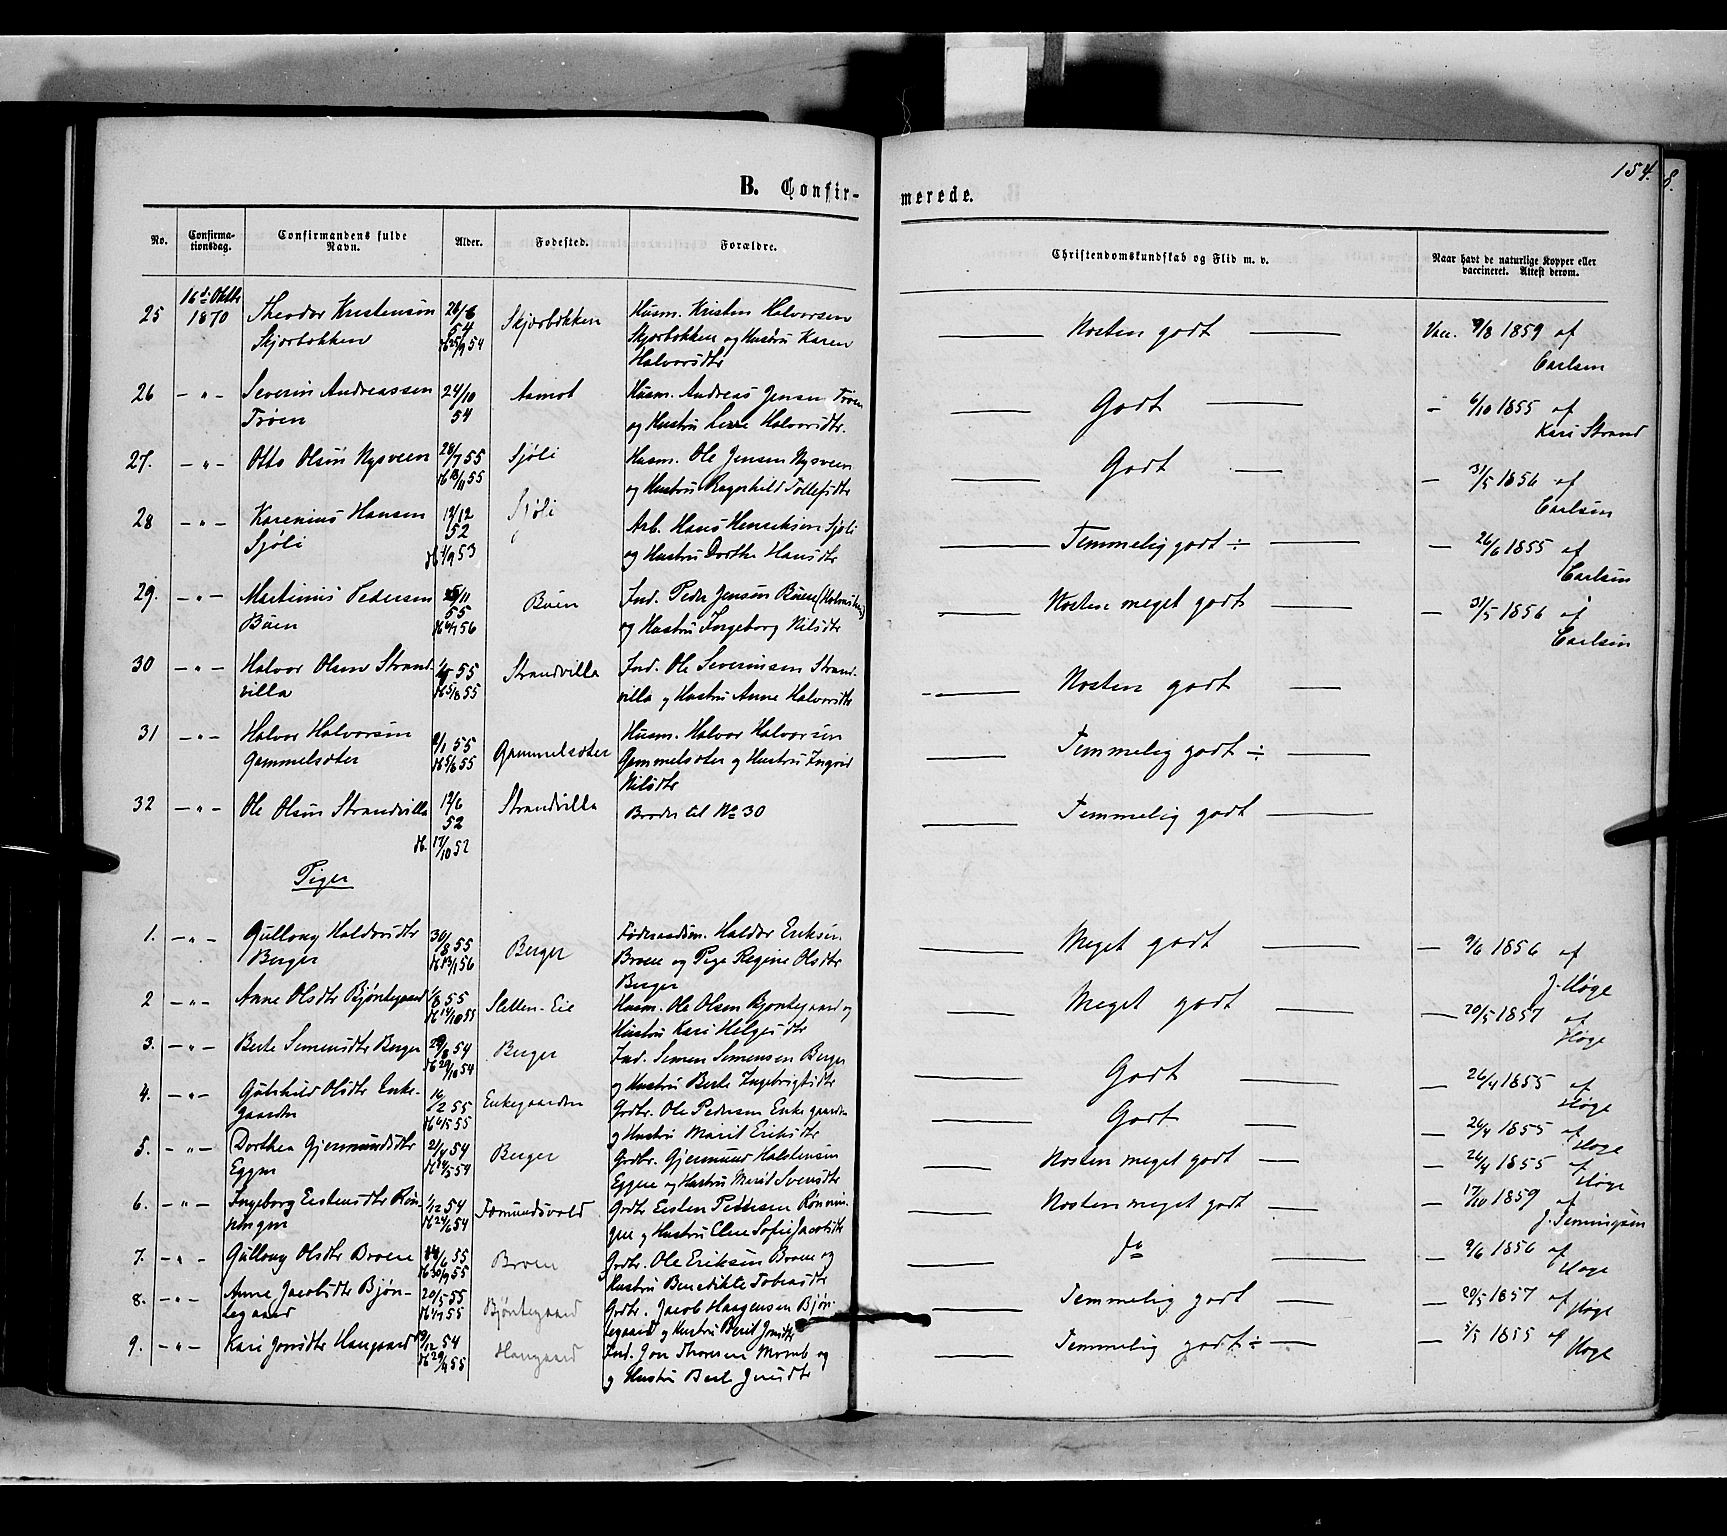 154.
8.
B. Confir-
merede.
No.
Confirma-
tionsdag.
Confirmandens fulde
Navn.
Alder.
Fodested.
Forældre.
Christendomskundskab og Flid m. v.
Naar havt de naturlige Kopper eller
vaccineret. Attest derom.
25 16d Oktbr 1870 Theodor Kristensøn 28/6 54 Skjærbækken Husm. Kristen Halvorsen Næsten godt Vac. 9/8 1859 af
Skjærbækken H 25/9 54 Skjærbækken og Hustru Karen Carlsen
Halvorsdtr
26 - " - Severin Andreassen 24/10 Aamot Husm. Andreas Jensen Trøen Godt - 6/10 1855 af
Trøen 54 og Hustru Lene Halvorsdtr. Kari Strand
27. - " - Otto Olsøn Nysveen 28/7 55 Sjøli Husm. Ole Jensen Nysveen Godt - 31/5 1856 af
H 18/11 55 og Hustru Ragnhild Tollefsdtr Carlsen
28 - " - Karenius Hansen 12/12 Sjøli Arb. Hans Henriksen Sjøli Temmelig godt ÷ - 26/6 1855 af
Sjøli 52 og Hustru Dorthe Hansdtr Carlsen
H 4/9 53
29. - " - Martinius Pedersen 25/11 Buen Ind. Peder Jensøn Buen Næsten meget godt - 31/5 1856 af
Buen 55 og Hustru Ingeborg Nilsdtr Carlsen
H 6/1 56
30 - " - Halvor Olsen Strand- 55 Strandvilla Ind. Ole Severinsen Strand- Næsten godt
villa H 5/8 55 villa og Hustru Anne Halvorsdtr
31 - " - Halvor Halvorsøn 9/1 55 Gammelsæter Husm. Halvor Halvorsen Temmelig godt ÷
Gammelsæter H 5/6 55 Gammelsæter og Hustru Ingrid
Nilsdtr
32 - " - Ole Olsøn Strandvilla 12/6 Strandvilla Broder til No 30 Temmelig godt
52
H. 17/10 52
Piger
1. - " - Gullaug Haldorsdtr 30/8 55 Berger Føderaadsm. Haldor Eriksen Meget godt - 9/6 1856 af
Berger H 13/1 56 Broen og Pige Regine Olsdtr J. Høge
Berger
2 - " - Anne Olsdtr Bjøntegaard 1/8 55 Sletten-Eie Husm. Ole Olsen Bjøntegaard og Meget godt - 20/5 1857 af
H 14/10 55 Hustru Kari Helgesdtr Høge
3. - " - Berte Simensdtr Berger 29/8 54 Berger Ind. Simen Simensen Berger Godt - 26/4 1855 af
H 29/10 54 og Hustru Berte Ingebrigtsdtr Høge
4. - " - Gulshild Olsdtr Enke- 16/2 55 Enkegaarden Grdbr. Ole Pedersen Enkegaarden Godt - 26/4 1855 af
gaarden H 6/5 55 og Hustru Marit Eriksdtr Høge
5. - " - Dorthea Gjermundsdtr 21/4 54 Berger Grdbr. Gjermund Halstensen Næsten meget godt - 26/4 1855 af
Eggen H 28/5 54 Eggen og Hustru Marit Svensdtr Høge
6. - " - Ingeborg Eistensdtr Røn- 1/12 54 Fæmundsvold Grdbr Eisten Pedersen Rønnin- Næsten meget godt - 17/10 1859 af
ningen H 24/6 54 gen og Hustru Elen Sofie Jacobsdtr J. Jenningsen
7. - " - Gullaug Olsdtr Broen 14/6 55 Broen Grdbr. Ole Eriksen Broen og do - 9/6 1856 af
H 30/9 55 Hustru Benedikte Tobiasdtr Høge
8. - " - Anne Jacobsdtr Bjøn- 20/5 55 Bjøntegaard Grdbr. Jacob Haagensen Bjøn- Temmelig godt - 20/5 1857 af
tegaard H 1/7 55 tegaard og Hustru Berit Jonsdtr Høge
9. - " - Kari Jonsdtr Haugaard /12 54 Haugaard Ind. Jon Thoresen Momb og Temmelig godt ÷ - 5/5 1855 af
H 29/4 55 og Hustru Berte Jonsdtr Høge